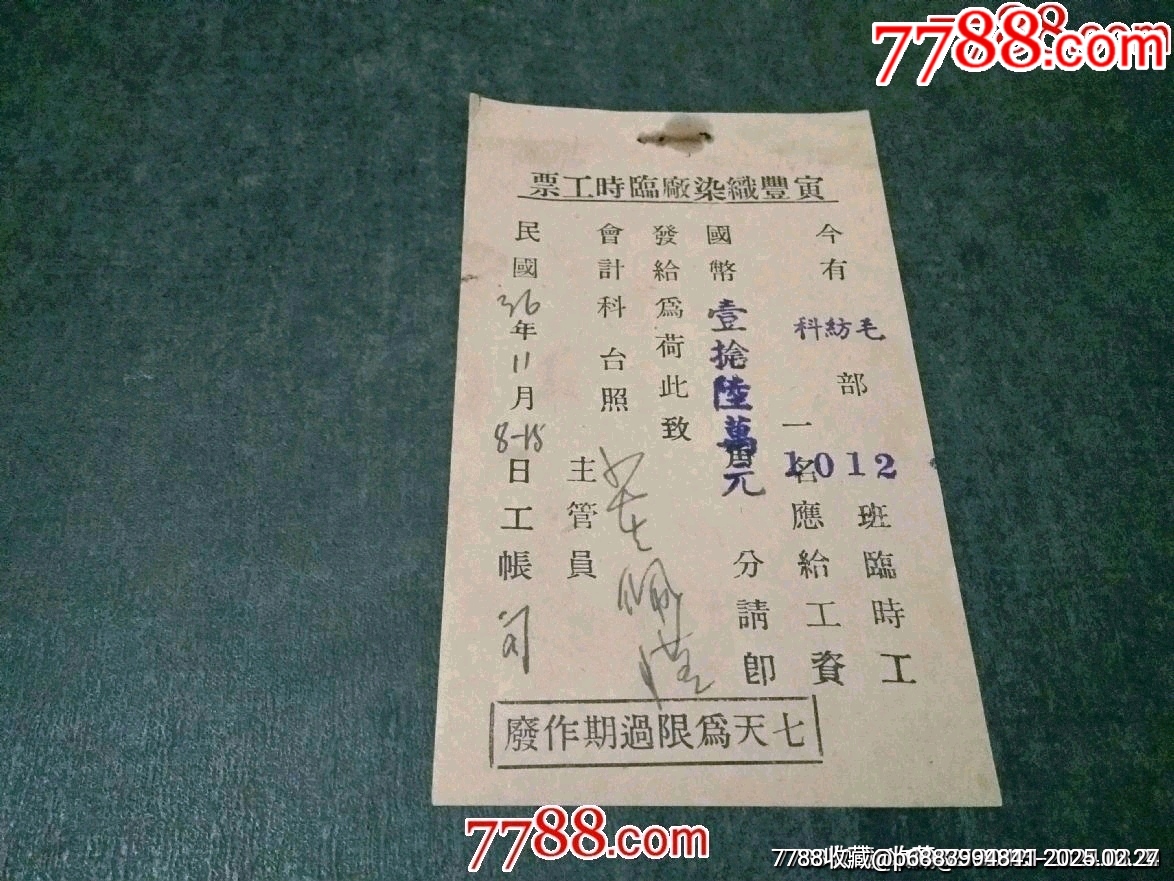 7788.com
寅豐織染廠臨時工票
今有毛紡科部1012班臨時工
一名應給工資
國幣壹搶陸萬元分請卽
發給爲荷此致
會計科台照
主管員
民國36年11月8-15日工帳
七天爲限過期作廢
7788.com
7788收藏@p6883994841-2025.02.27